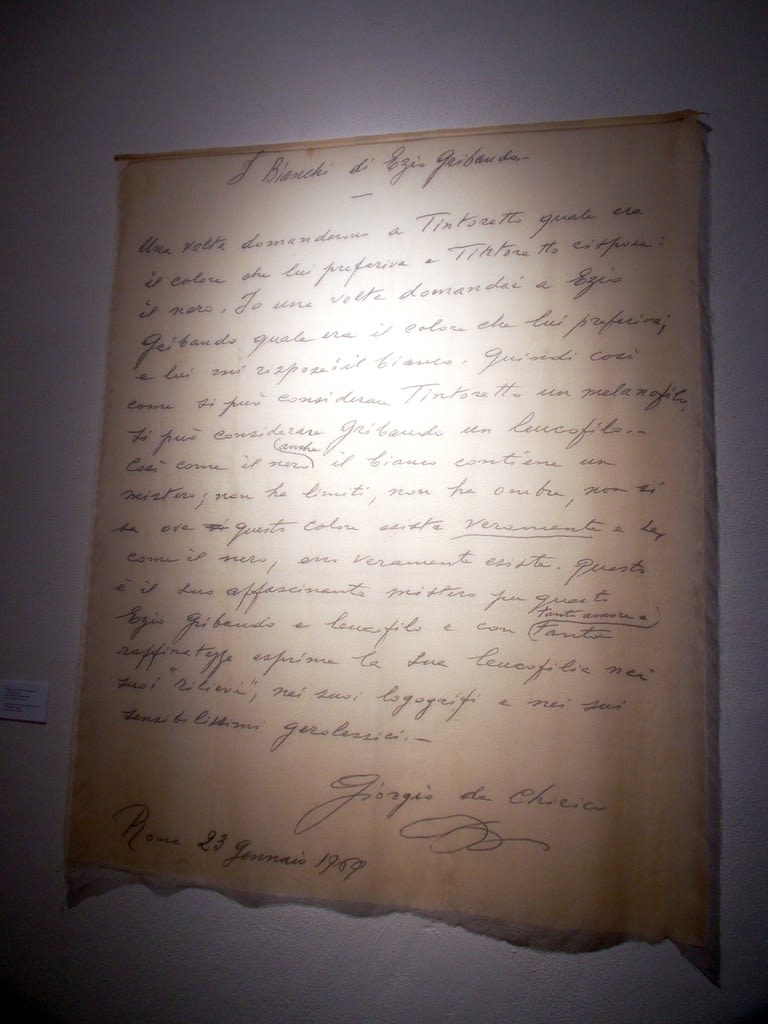 I Bianchi di Ezio Gribaudo.-
Una volta domandarono a Tintoretto quale era
il colore che lui preferiva e Tintoretto rispose:
il nero. Io una volta domandai a Ezio
Gribaudo quale era il colore che lui preferiva;
e lui mi rispose: il bianco. Quindi così
come si può considerare Tintoretto un melanofilo,
si può considerare Gribaudo un leucofilo.-
Così come il nero (anche) il bianco contiene un
mistero; non ha limiti, non ha ombre, non si
sa ove questo colore esista veramente e se,
come il nero, esso veramente esiste. Questo
è il suo affascinante mistero per questo
Ezio Gribaudo è leucofilo e con (tanto amore e) tanta
raffinatezza esprime la sua leucofilia nei
suoi "rilievi", nei suoi logogrifi e nei suoi
sensibilissimi
Giorgio de Chirico
Roma 23 Gennaio 1969